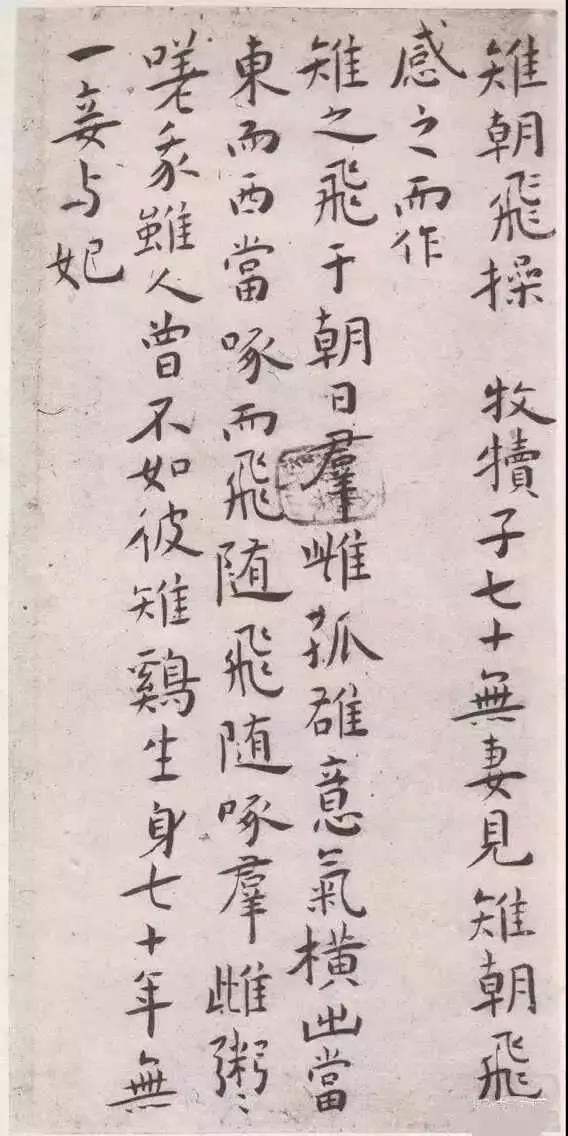 雉朝飛操 牧犢子七十無妻見雉朝飛
感之而作
雉之飛于朝日羣雌孤雄意氣橫出當
東而西當啄而飛随飛随啄羣雌粥〻
嗟我雖人曾不如彼雉鷄生身七十年無
一妾与妃